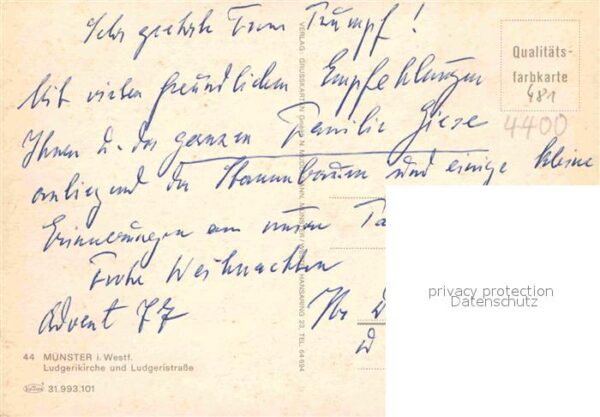 Sehr geehrte Frau Trumpf!
Mit vielen freundlichen Empfehlungen
Ihnen u. der ganzen Familie Giese
anliegend der Stammbaum und einige kleine
Erinnerungen an unsern Ta
Frohe Weihnachten
Advent 77
Ihr
Qualitäts-
farbkarte
481
4400
VERLAG: GRUSSKARTEN GmbH
HANSARING 23, TEL. 64694
privacy protection
Datenschutz
44 MÜNSTER i. Westf.
Ludgerikirche und Ludgeristraße
31.993.101